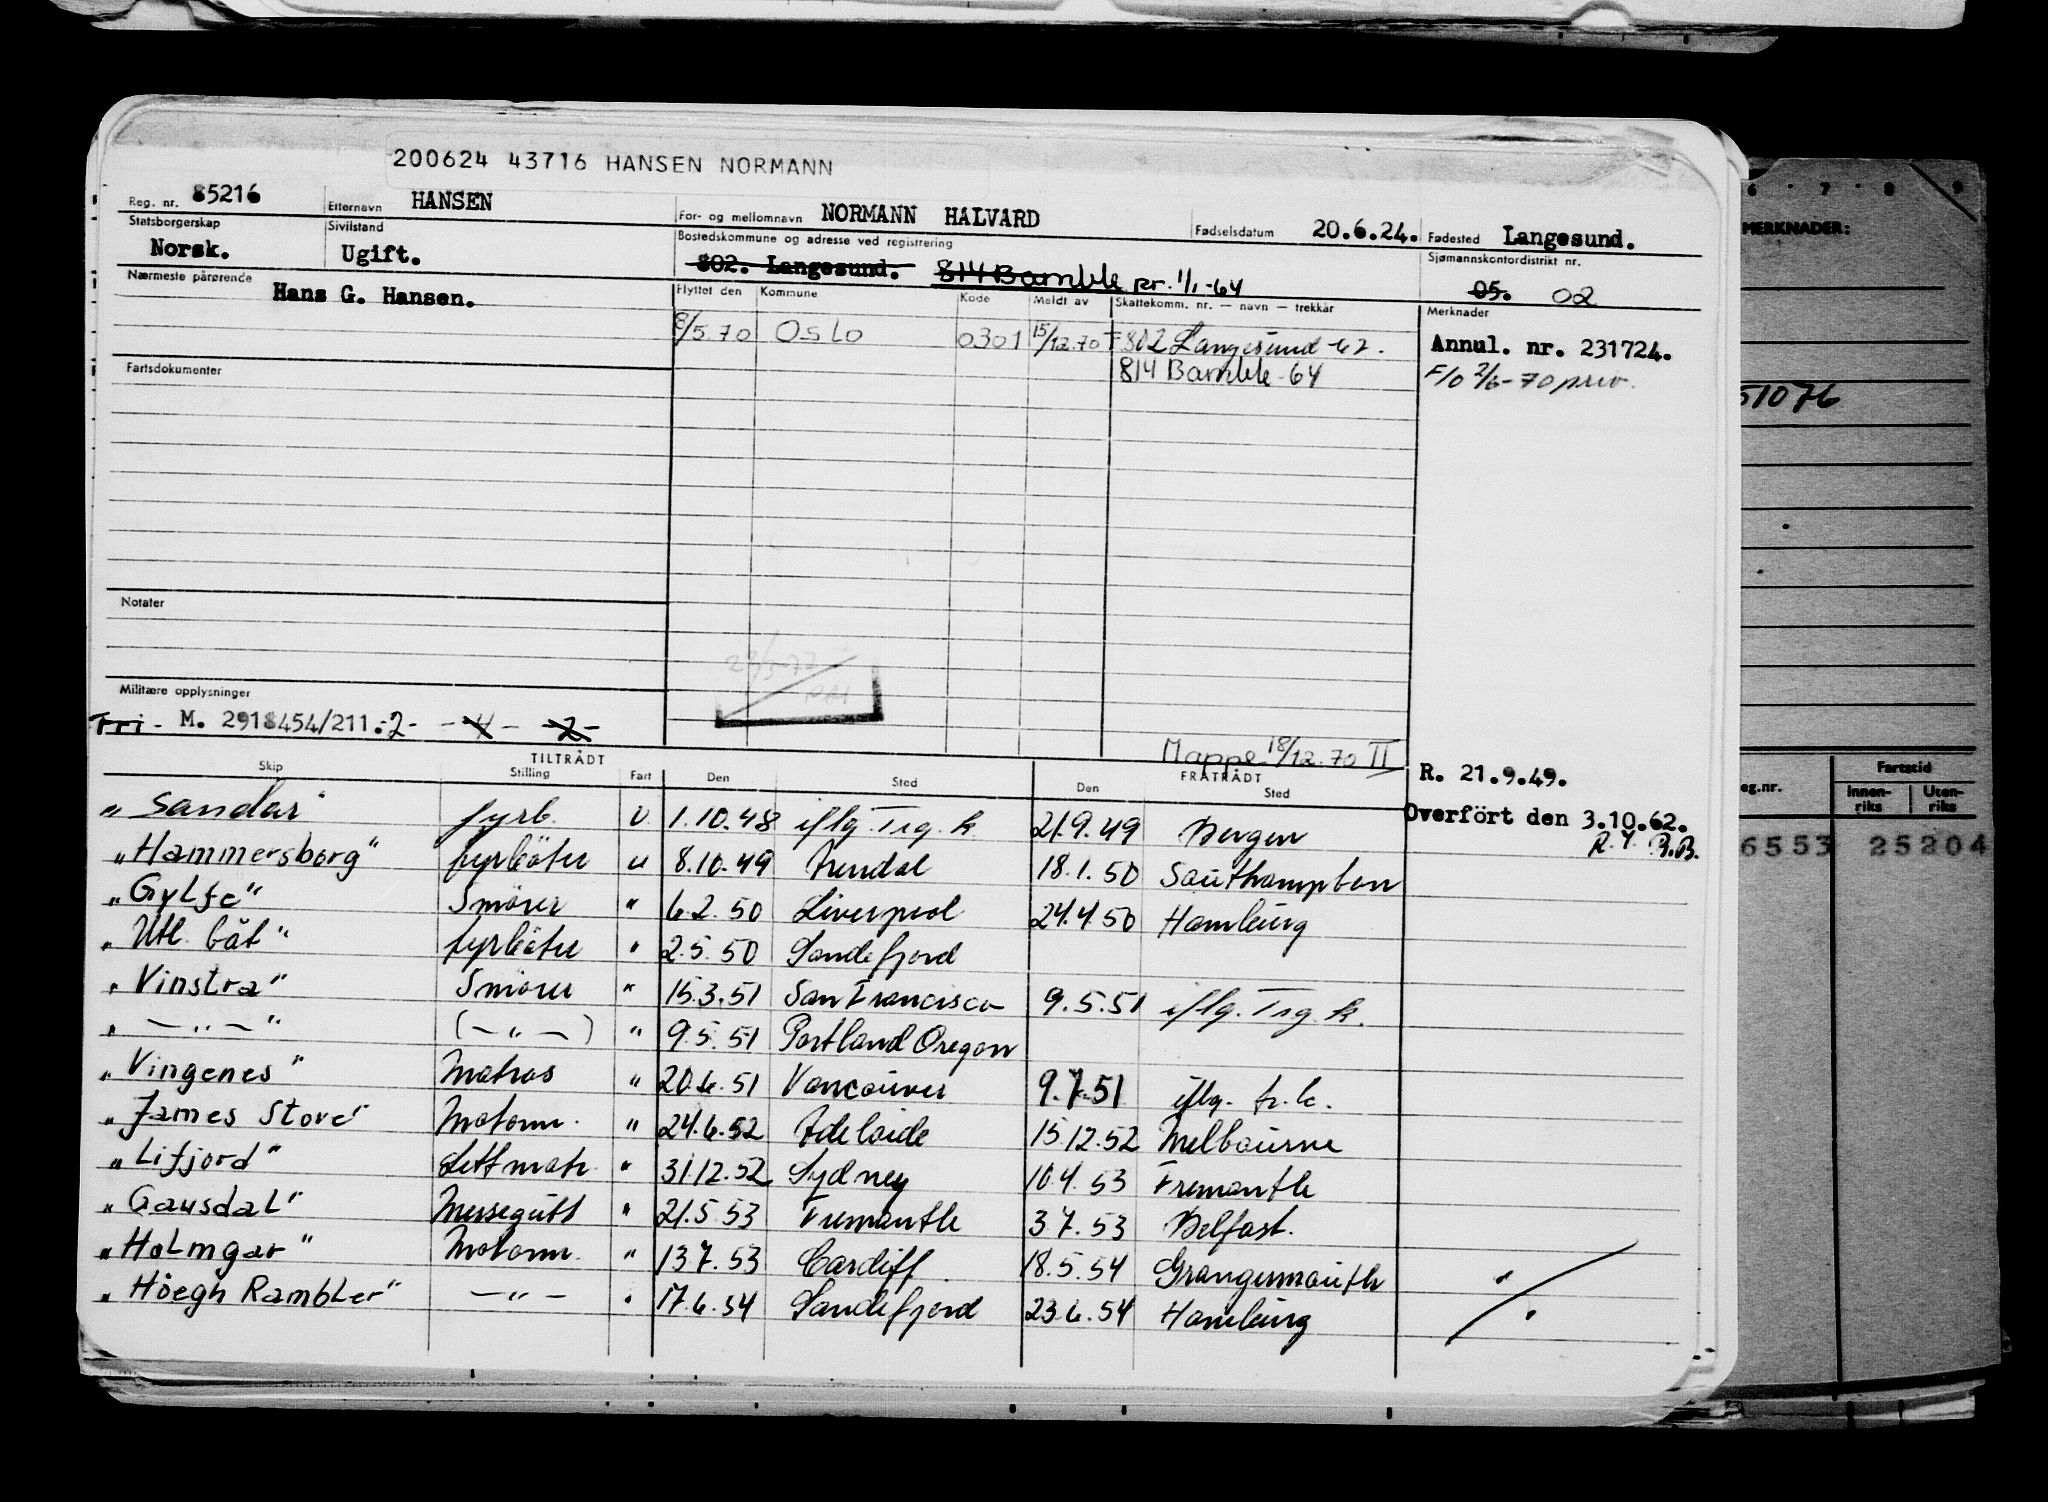 200624 43716 HANSEN NORMANN
Reg. nr. 85216 Etternavn HANSEN For- og mellomnavn NORMANN HALVARD Fødselsdatum 20.6.24. Fødested Langesund.
Statsborgerskap Norsk. Sivilstand Ugift. Bostedskommune og adresse ved registrering 802. Langesund. 814 Bamble pr. 1/1-64 Sjømannskontordistrikt nr. 05. 02
Nærmeste pårørende Hans G. Hansen. Flyttet den Kommune Kode Meldt av Skattekomm. nr. — navn — trekkår Merknader
8/5.70 OSLO 0301 15/12.70 F 802 Langesund-62. Annul. nr. 231724.
814 Bamble-64 F/O 2/6-70 priv.
Fartsdokumenter
Notater
Militære opplysninger
Fri - M. 2918454/211.-2- -4- -2-
Mappe 18/12.70 II
TILTRÅDT FRATRÅDT R. 21.9.49.
Skip Stilling Fart Den Sted Den Sted
Overfört den 3.10.62.
R.Y. B.B.
"Sandar" fyrb. U 1.10.48 iflg. Trg. k. 21.9.49 Bergen
"Hammersborg" fyrböter u 8.10.49 Arendal 18.1.50 Southampton
"Gylfe" Smörer " 6.2.50 Liverpool 24.4.50 Hamburg
"Utl. båt" fyrböter " 2.5.50 Sandefjord
"Vinstra" Smörer " 15.3.51 San Francisco 9.5.51 iflg. Trg. k.
" — " — " (— " —) " 9.5.51 Portland Oregon
"Vingenes" Matros " 20.6.51 Vancouver 9.7.51 iflg. tr. k.
"James Stove" Motorm. " 24.6.52 Adelaide 15.12.52 Melbourne
"Lifjord" Lettmatr. " 31.12.52 Sydney 10.4.53 Fremantle
"Gausdal" Messegutt " 21.5.53 Fremantle 3.7.53 Belfast.
"Holmgar" Motorm. " 13.7.53 Cardiff 18.5.54 Grangemouth "
"Höegh Rambler" — " — " 17.6.54 Sandefjord 23.6.54 Hamburg "
6 7 8 9
MERKNADER:
51076
eg.nr. Fartstid
Innen-riks Uten-riks
6553 25204